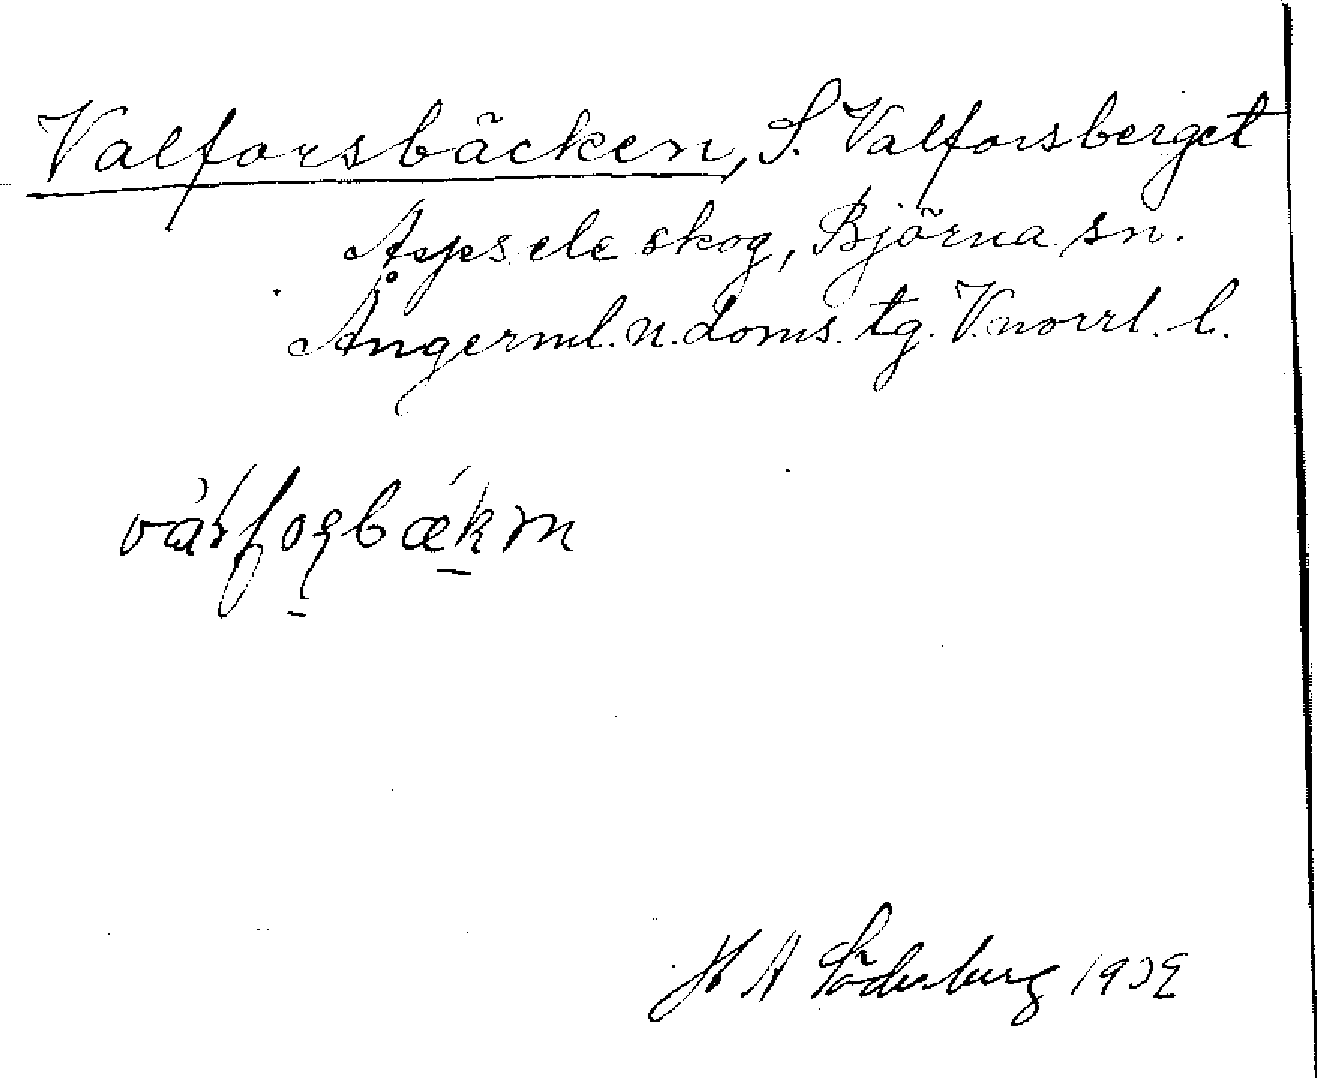 Valforsbäcken, S. Valforsberget
Aspsele skog, Björna sn.
Ångerml. n. doms. tg. V.norrl. l.
H A Söderberg